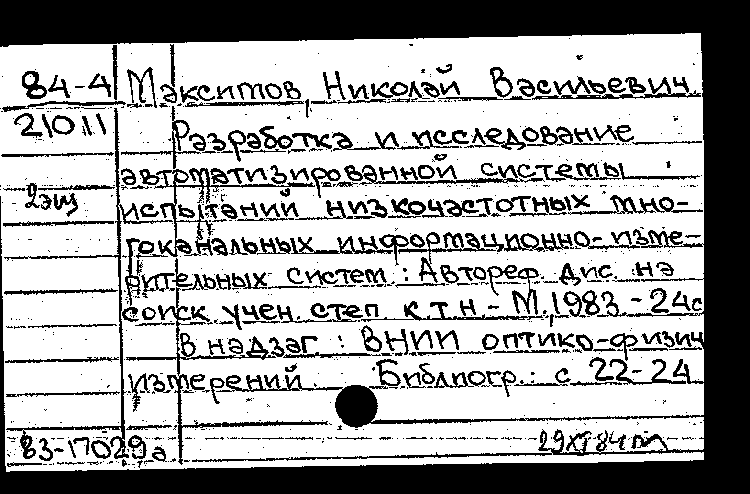 84-4 Максимов, Николай Васильевич
21011 Разработка и исследование
автоматизированной системы
2экз испытаний низкочастотных мно-
гоканальных информационно-изме-
рительных систем : Автореф. дис. на
соиск. учен. степ. к.т.н. - М., 1983. - 24с
В надзаг. : ВНИИ оптико-физич
измерений Библиогр.: с 22-24
83-17029а